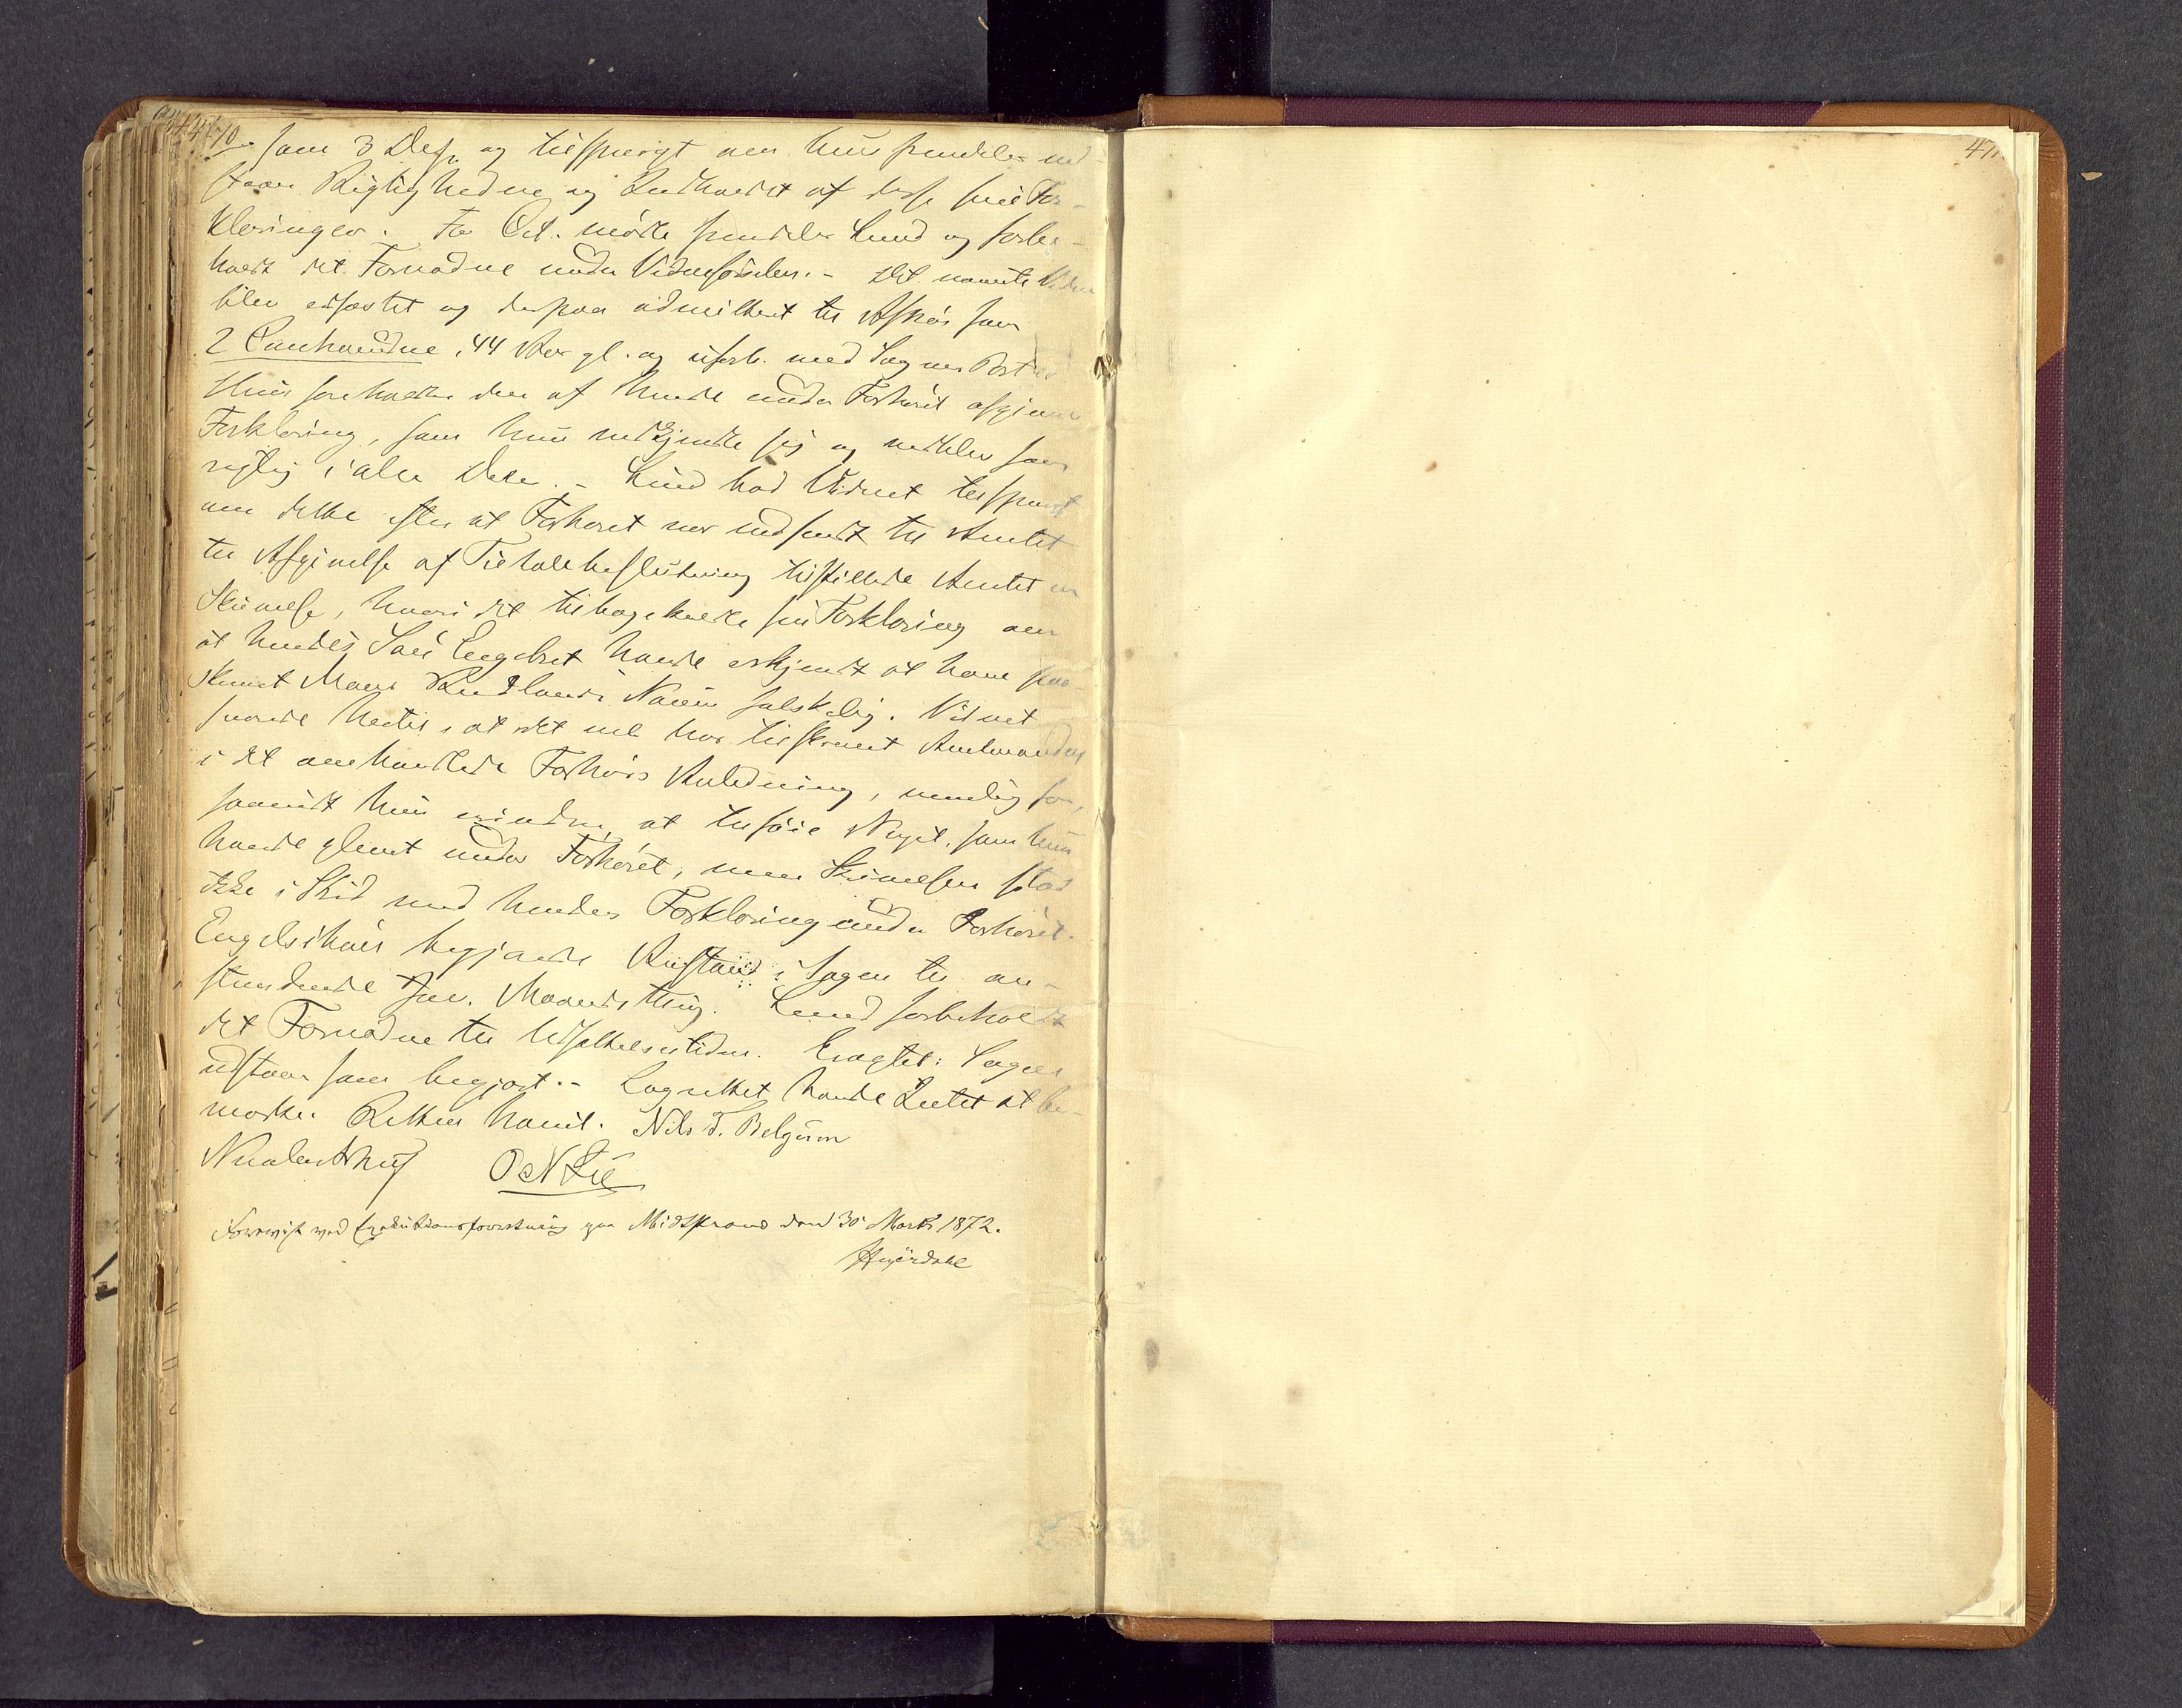 470
som 3 Dep. og tilspurgt om hun fremdeles ved-
staar Rigtigheden og Indholdet af disse sine For-
klaringer. For Cit. mødte fremdeles Lund og forbe-
holdt det Fornødne under Vidneførselen. - Det nævnte Vidne
blev edfæstet og derpaa admitteret til Afhør som
2 44 Aar gl. og ubesl. med Sagens Parter
Hun foreholdtes den af hende under Forhøret afgivne
Forklaring, som hun vedkjendte sig og vedblev som
rigtig i alle Dele. - Lund bad Vidnet tilspurgt
om dette efter at Forhøret var indsendt til Amtet
til Afgivelse af Tiltalebeslutning tilstillede Amtet en
Skrivelse, hvori det tilbagekaldte sin Forklaring om
at hendes Søn Engebret havde erkjendt at have paa-
skrevet Navn falskelig. Vidnet
svarede hertil, at det vel har tilskrevet Amtmanden
i det omhandlede Forhørs Anledning, nemlig for,
saavidt hun erindrer, at tilføie Noget, som hun
havde glemt under Forhøret, men Skrivelsen stod
ikke i Strid med hendes Forklaring under Forhøret.
Engelschøn begjærede Anstand i Sagen til an-
stundende Jan. Maaneds Thing. Lund forbeholdt
det Fornødne til Udsættelsestiden. Eragtet: Sagen
udstaar som begjært. - Lagrettet havde Intet at be-
mærke. Retten hævet. Nils T. Belgum
O N Lie
Forevist ved Exekutionsforretning paa Midtstrand den 30 Marts 1872.
Heyerdahl
471.